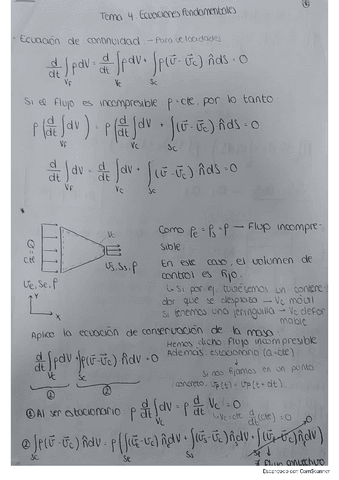 Tema 4. Ecuaciones Fundamentales
- Ecuación de continuidad - Para velocidades
d/dt ∫_{V_F} ρdV = d/dt ∫_{V_c} ρdV + ∫_{S_c} ρ(v̄ - v̄_c) n̂ dS = 0
Si el flujo es incompresible ρ = cte, por lo tanto
ρ(d/dt ∫_{V_F} dV) = ρ(d/dt ∫_{V_c} dV + ∫_{S_c} (v̄ - v̄_c) n̂ dS = 0
d/dt ∫_{V_F} dV = d/dt ∫_{V_c} dV + ∫_{S_c} (v̄ - v̄_c) n̂ dS = 0
Q = cte
V_c
v̄_s, S_s, ρ
v̄_e, S_e, ρ
Y
X
Como ρ_e = ρ_s = ρ — Flujo incompre-
sible
En este caso, el volumen de
control es fijo.
↳ Si por ej. tuviésemos un contene-
dor que se desplaza → V_c móvil
Si tenemos una jeringuilla → V_c defor
mable
Aplico la ecuación de conservación de la masa
d/dt ∫_{V_c} ρdV + ∫_{S_c} ρ(v̄ - v̄_c) n̂ dV = 0
①
②
Hemos dicho flujo incompresible
Además: estacionario (Q = cte)
↳ si nos fijamos en un punto
concreto, v_p(t) = v_p(t + dt)
① Al ser estacionario ρ d/dt ∫_{V_c} dV = ρ d/dt V_c = 0
↳ V_c = cte d/dt (cte) = 0
② ∫_{S_c} ρ(v̄ - v̄_c) n̂ dV = ρ(∫(v̄_e - v̄_c) n̂ dV + ∫(v̄_s - v̄_c) n̂ dV + ∫(v̄_p - v̄_c) n̂ dV)
Escaneado con CamScanner